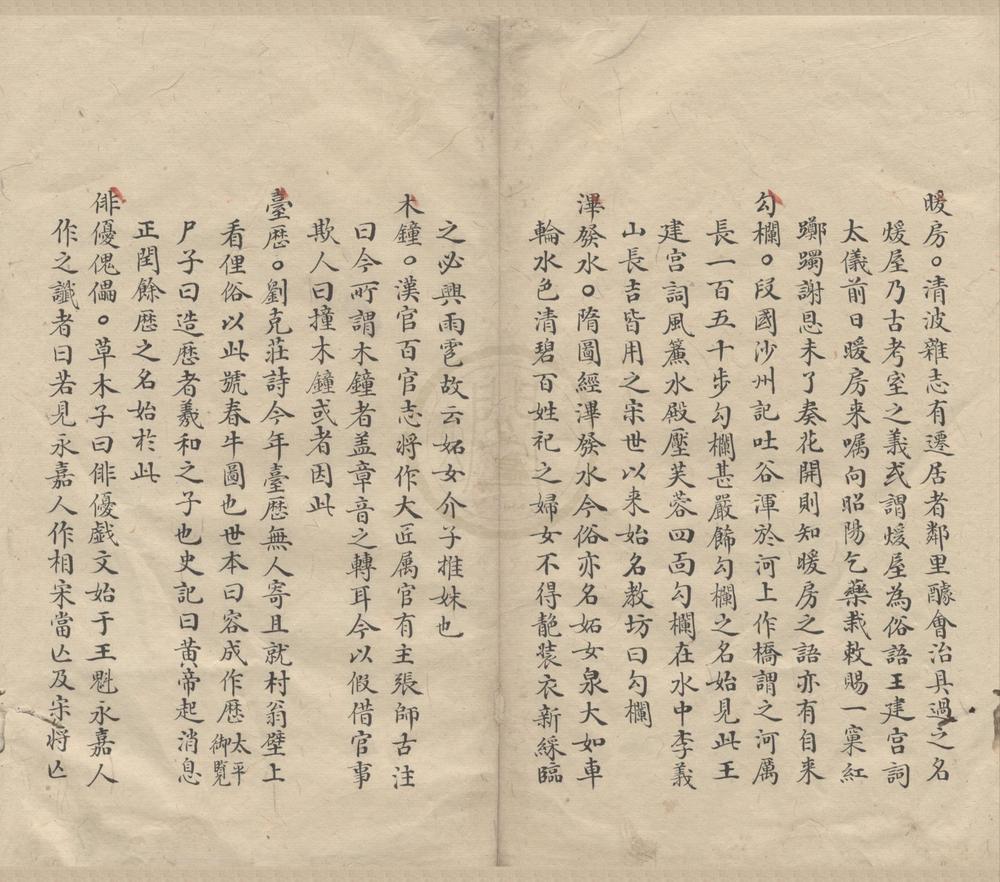 暖房。清波雜志有遷居者鄰里醵會治具過之名
煖屋乃古考室之義或謂煖屋為俗語王建宫詞
太儀前日暖房来嘱向昭陽乞藥栽敕賜一窠紅
躑躅謝恩未了奏花開則知暖房之語亦有自来
勾欄。段國沙州記吐谷渾於河上作橋謂之河厲
長一百五十步勾欄甚嚴飾勾欄之名始見此王
建宫詞風簾水殿壓芙蓉四面勾欄在水中李義
山長吉皆用之宋世以来始名教坊曰勾欄
澤發水。隋圖經澤發水今俗亦名妬女泉大如車
輪水色清碧百姓祀之婦女不得靘裝衣新綵臨
之必興雨雹故云妬女介子推妹也
木鐘。漢官百官志将作大匠属官有主張師古注
曰今所謂木鐘者盖章音之轉耳今以假借官事
欺人曰撞木鐘或者因此
臺歴。劉克莊詩今年臺歴無人寄且就村翁壁上
看俚俗以此號春牛圖也世本曰容成作歴太平御覧
尸子曰造歴者羲和之子也史記曰黄帝起消息
正閏餘歴之名始於此
俳優傀儡。草木子曰俳優戯文始于王魁永嘉人
作之讖者曰若見永嘉人作相宋當亾及宋将亾